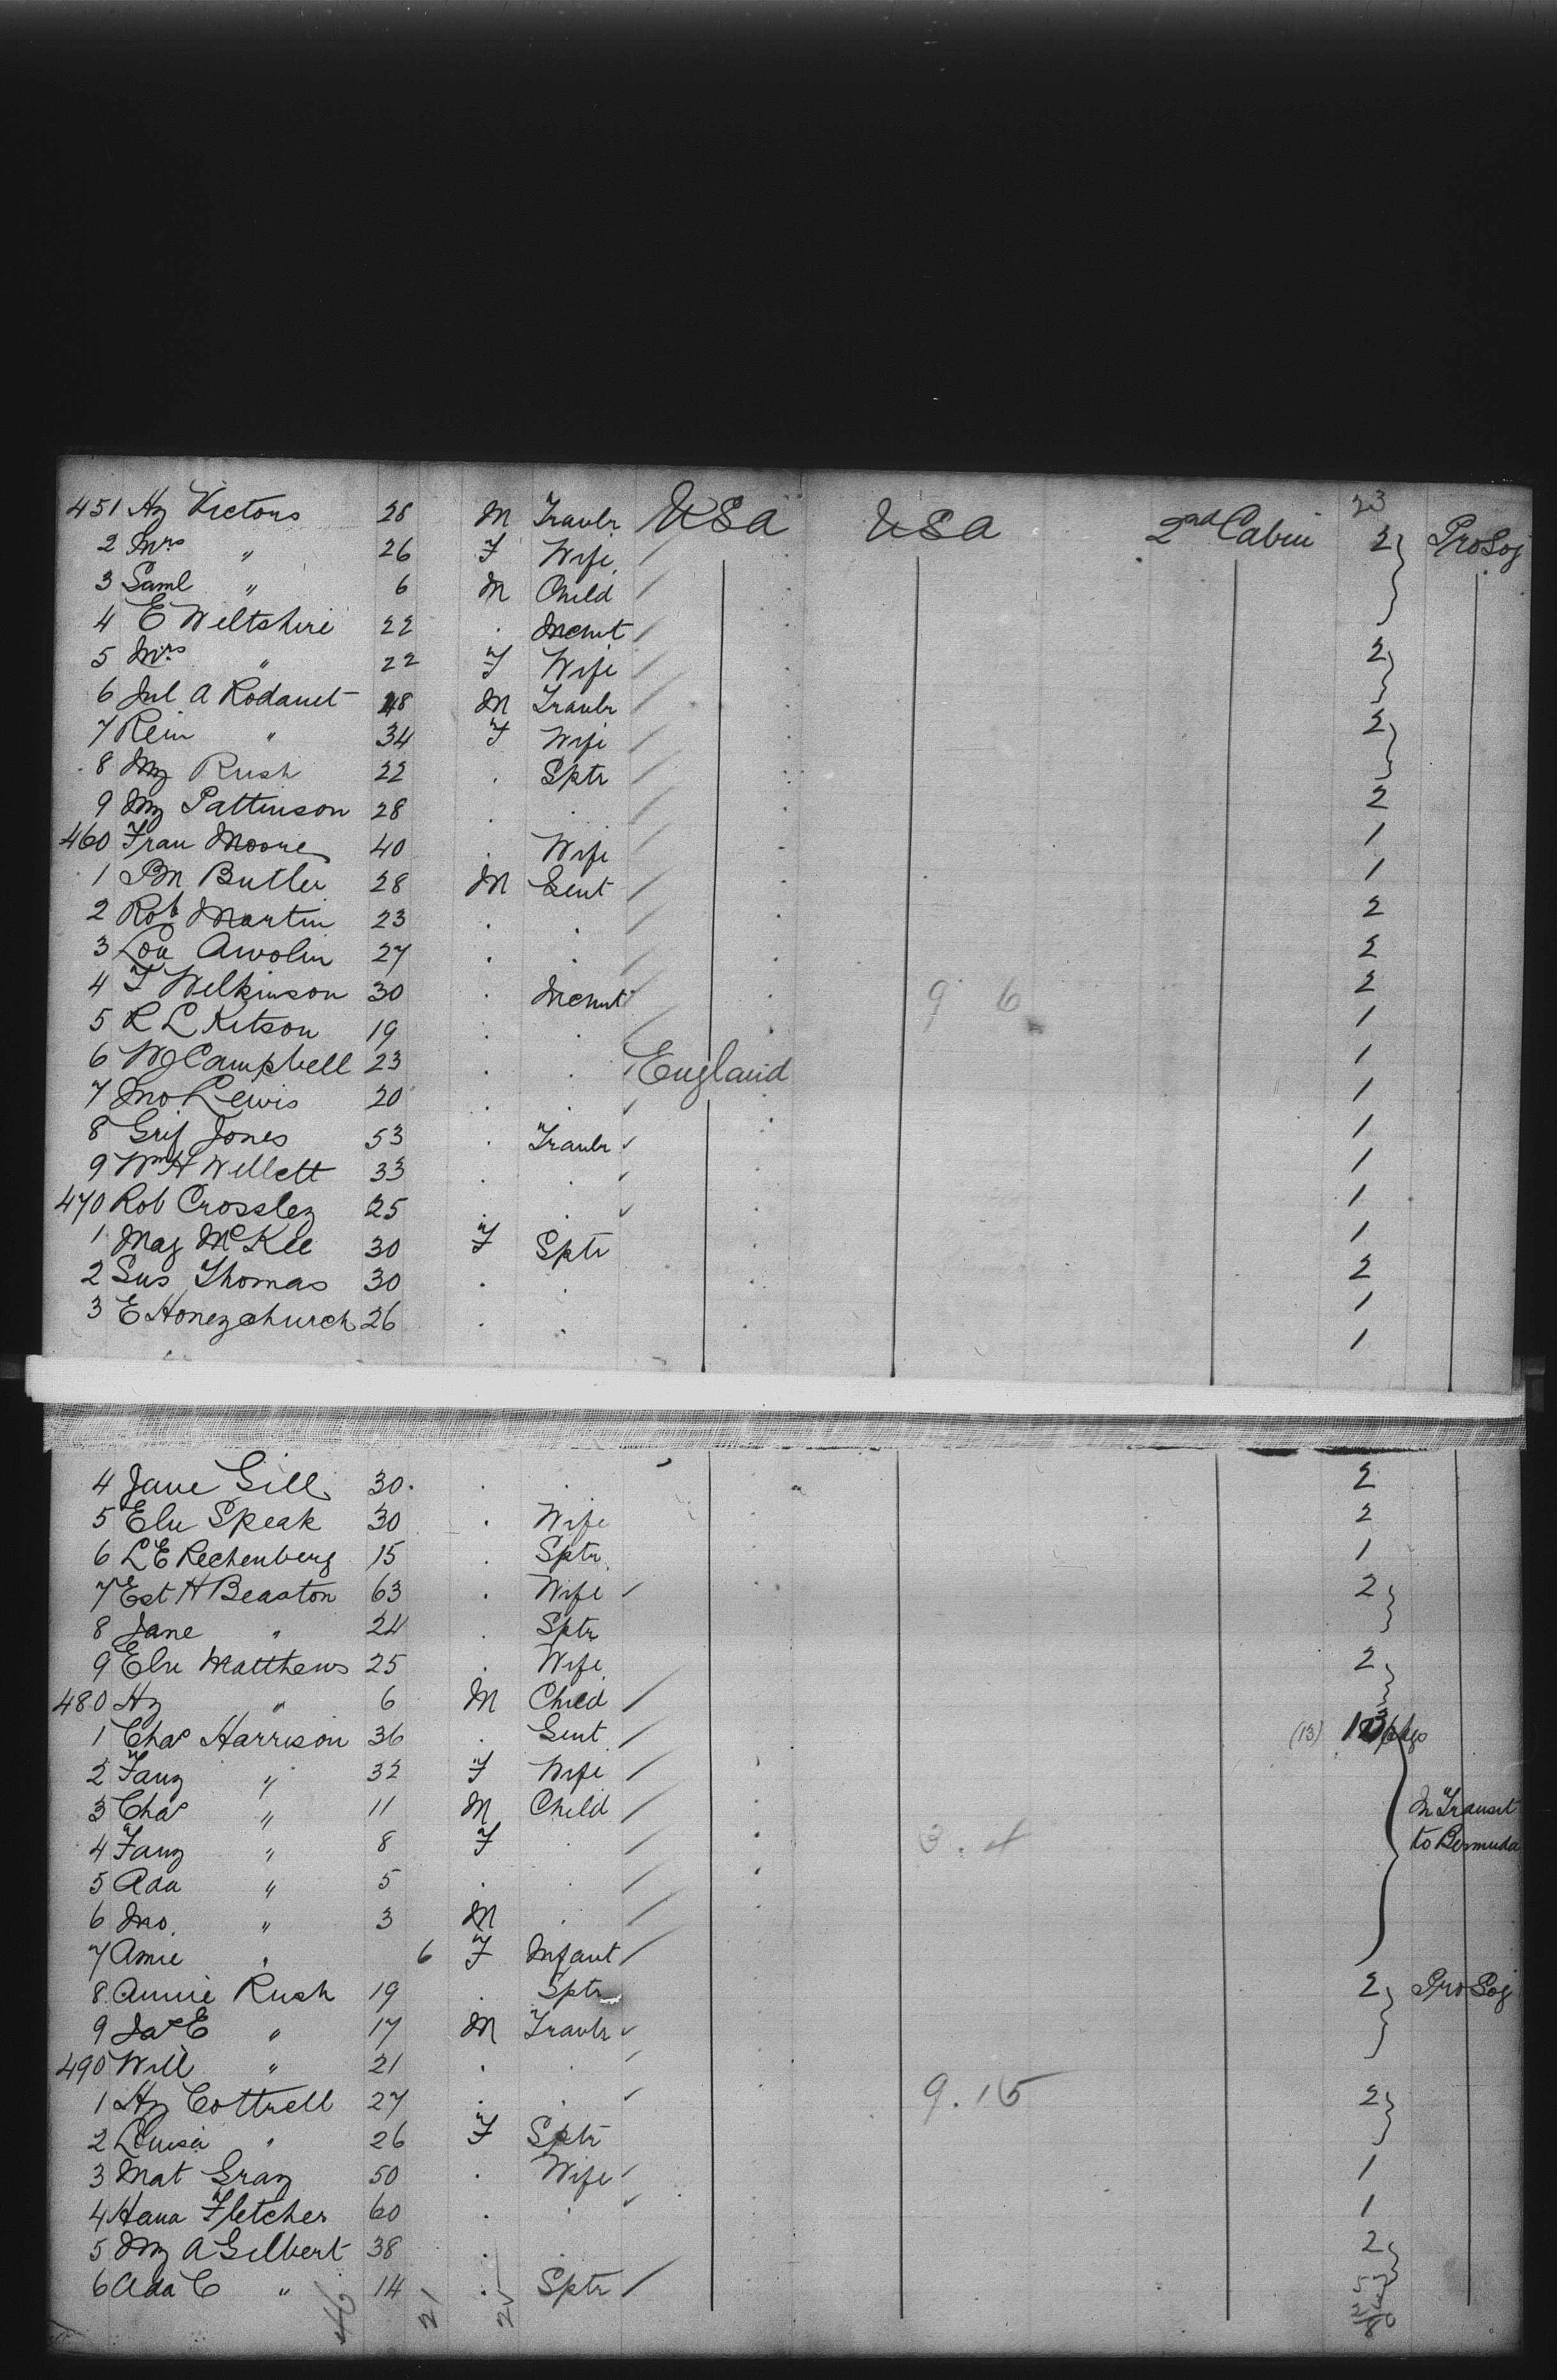 23
451 Hy Victors 28 M Travlr USA USA 2nd Cabin 2 Pro Soj
2 Mrs " 26 F Wife
3 Saml " 6 M Child
4 E Wiltshire 22 . Mchnt 2
5 Mrs " 22 F Wife
6 Jul A Rodanet 48 M Travlr 2
7 " 34 F Wife
8 My Rush 22 . Sptr 2
9 My Pattinson 28 . . 1
460 Fran Moore 40 . Wife 1
1 Butler 28 M Gent 2
2 Rob Martin 23 . . 2
3 Lou 27 . . 2
4 T Wilkinson 30 . Mchnt 9 6 1
5 R L Kitson 19 . . 1
6 W J Campbell 23 . . England 1
7 Jno Lewis 20 . . 1
8 Grif Jones 53 . Travlr 1
9 Wm H Willett 33 . . 1
470 Rob Crossley 25 . . 1
1 Mag McKee 30 F Sptr 2
2 Sus Thomas 30 . . 1
3 E Honeychurch 26 . . 1
4 Jane Gill 30 . . 2
5 Eliz Speak 30 . Wife 2
6 L E Rechenberg 15 . Sptr 1
7 Est H Beaston 63 . Wife 2
8 Jane " 24 . Sptr
9 Eliz Matthews 25 . Wife 2
480 Hy " 6 M Child
1 Chas Harrison 36 . Gent (13) 13 pkgs
2 Fany " 32 F Wife
3 Chas " 11 M Child In Transit
4 Fany " 8 F . 3 . 4 to Bermuda
5 Ada " 5 . .
6 Jno. " 3 M .
7 Amie " 6 F Infant
8 Annie Rush 19 . Sptr 2 Pro Soj
9 Jas E " 17 M Travlr
490 Will " 21 . .
1 Hy Cottrell 27 . . 9.15 2
2 Louisa " 26 F Sptr
3 Mat Gray 50 . Wife 1
4 Hana Fletcher 60 . . 1
5 My A Gilbert 38 . . 2
6 Ada C " 14 . Sptr
46 21 25